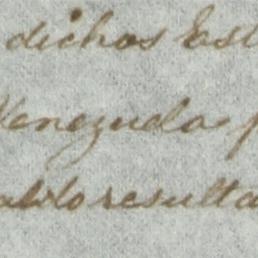 dichos Est
Venezuela p
ablo resulta